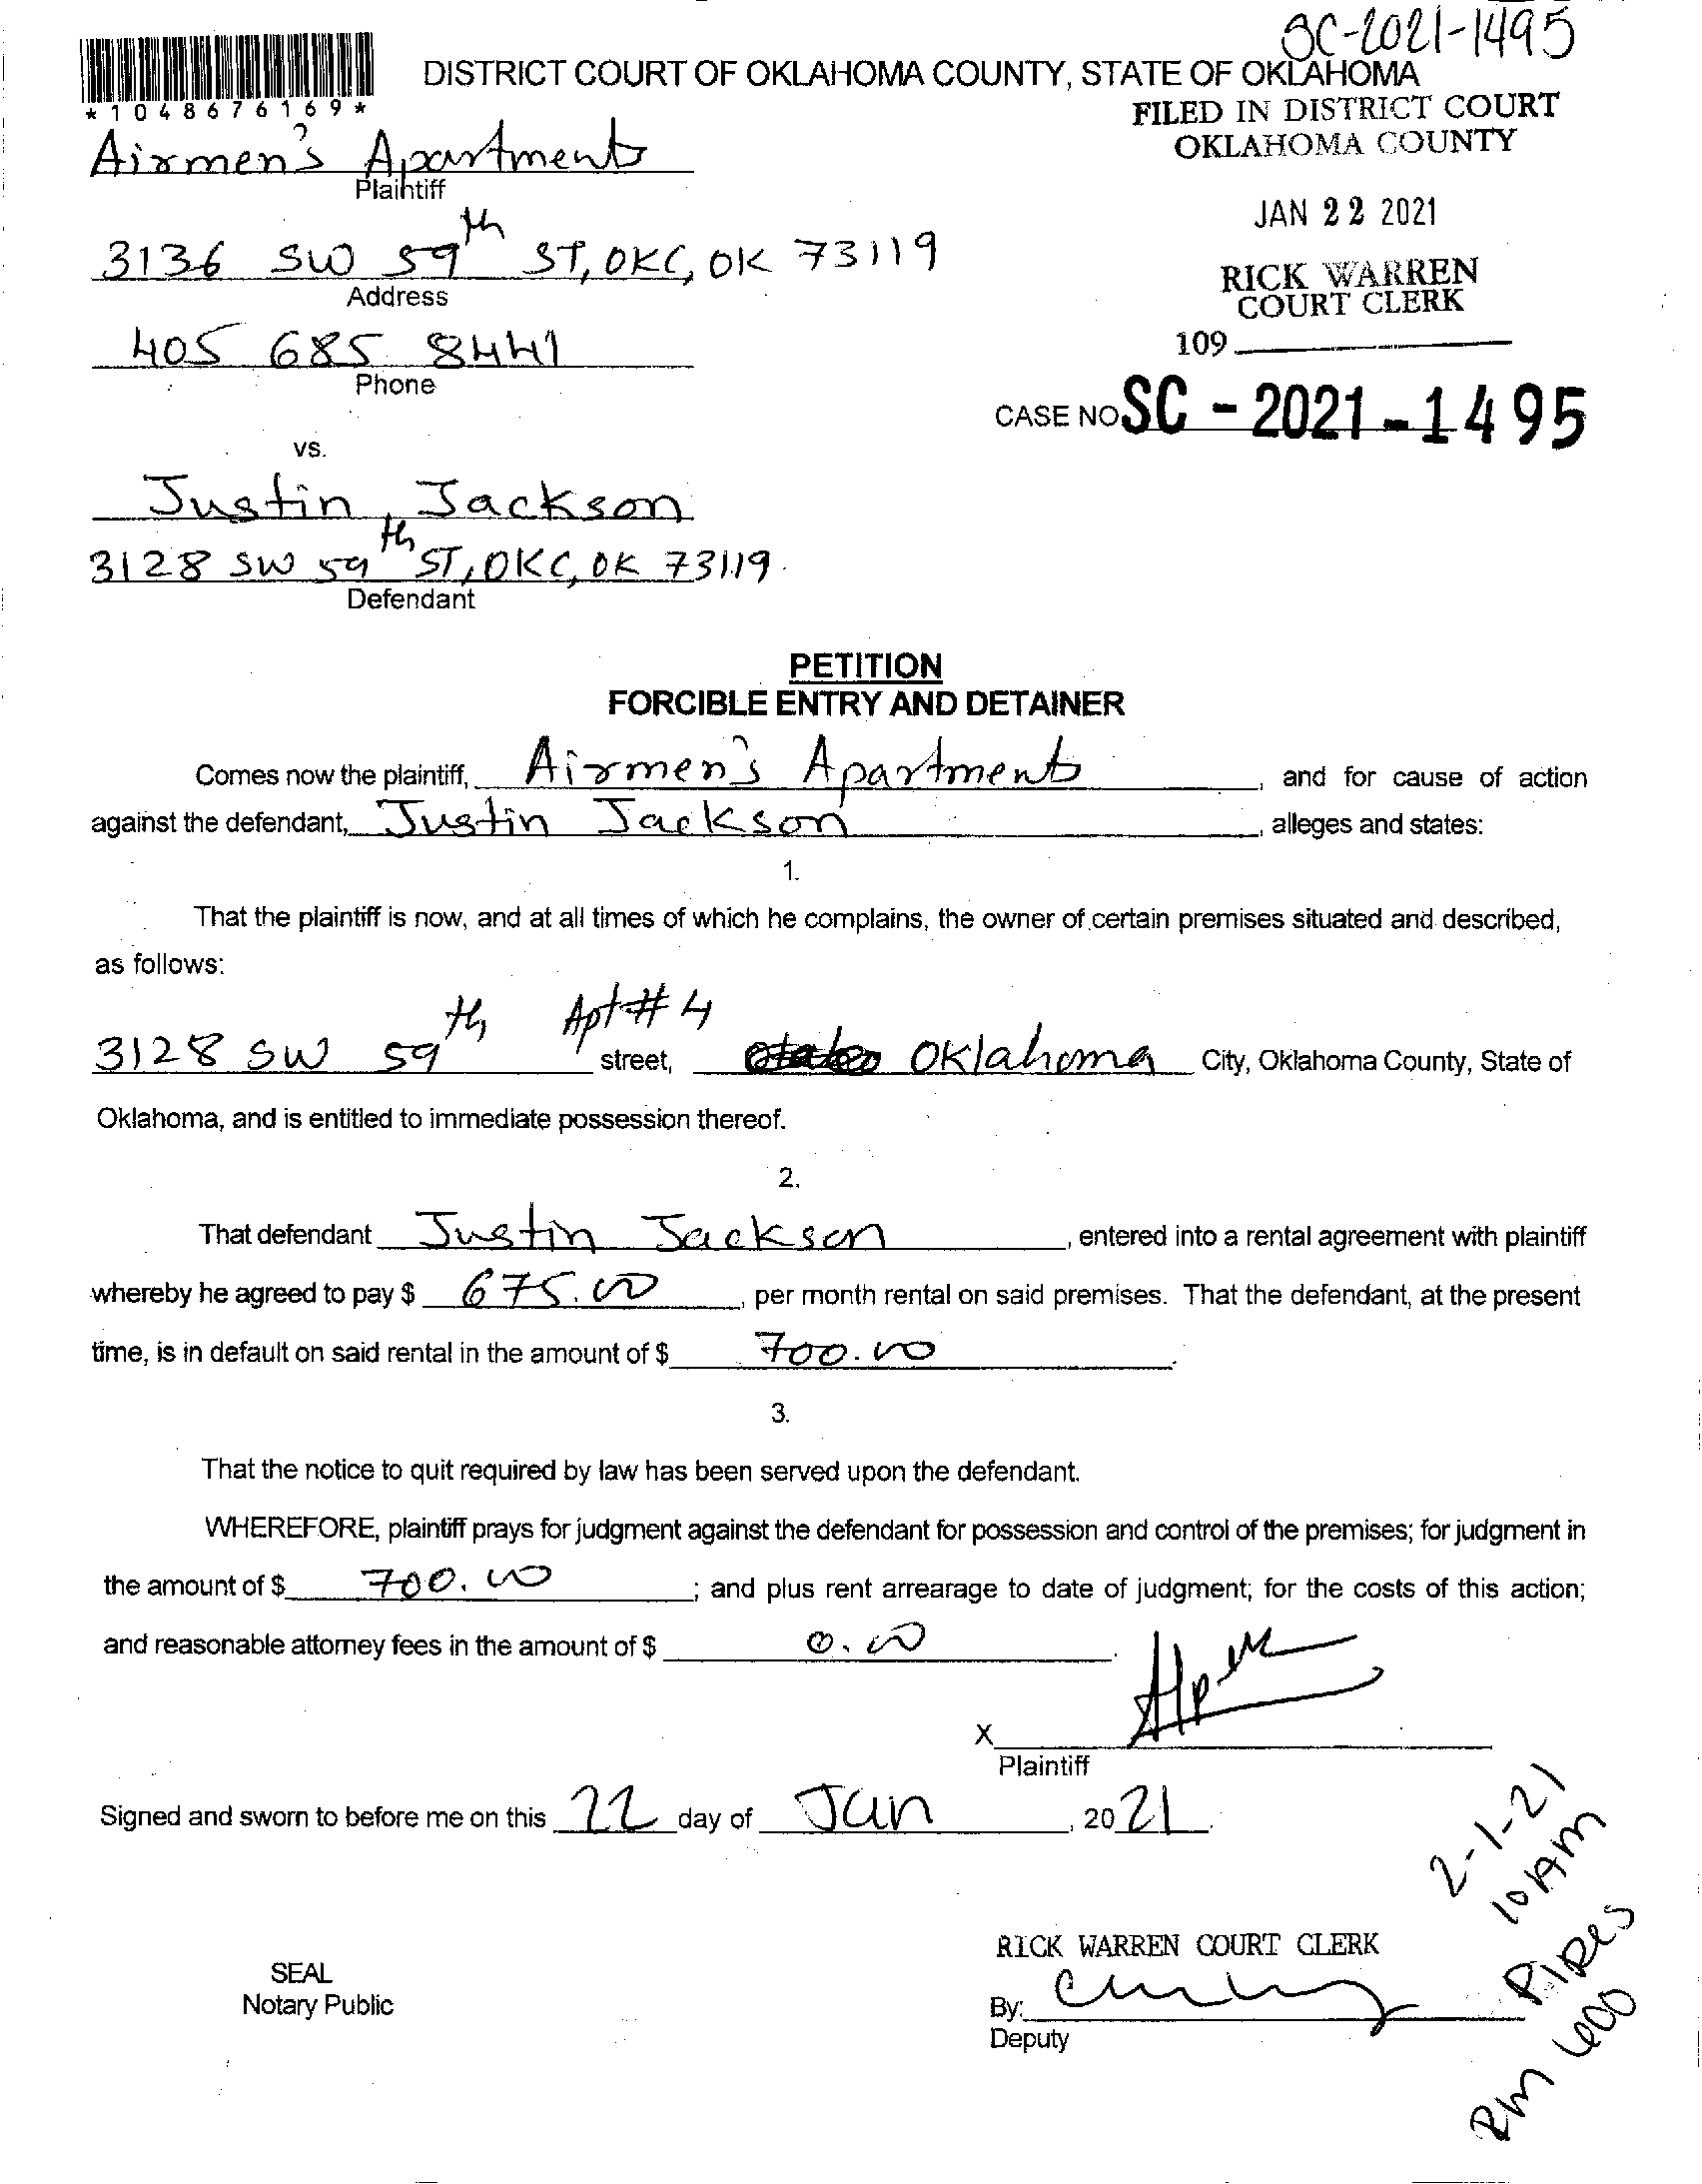 SC-2021-1495
DISTRICT COURT OF OKLAHOMA COUNTY, STATE OF OKLAHOMA
*1048676169*
FILED IN DISTRICT COURT
OKLAHOMA COUNTY
Airmen's Apartments
Plaintiff
JAN 22 2021
3136 SW 59th ST, OKC, OK 73119
Address
RICK WARREN
COURT CLERK
405 685 8441
Phone
109
CASE NO SC - 2021 - 1495
vs.
Justin Jackson
3128 SW 59th ST, OKC, OK 73119
Defendant
PETITION
FORCIBLE ENTRY AND DETAINER
Comes now the plaintiff, Airmen's Apartments, and for cause of action
against the defendant, Justin Jackson, alleges and states:
1.
That the plaintiff is now, and at all times of which he complains, the owner of certain premises situated and described,
as follows:
3128 SW 59th Apt # 4 street, Oklahoma City, Oklahoma County, State of
Oklahoma, and is entitled to immediate possession thereof.
2.
That defendant Justin Jackson, entered into a rental agreement with plaintiff
whereby he agreed to pay $ 675.00, per month rental on said premises. That the defendant, at the present
time, is in default on said rental in the amount of $ 700.00.
3.
That the notice to quit required by law has been served upon the defendant.
WHEREFORE, plaintiff prays for judgment against the defendant for possession and control of the premises; for judgment in
the amount of $ 700.00; and plus rent arrearage to date of judgment; for the costs of this action;
and reasonable attorney fees in the amount of $ 0.00.
X
Plaintiff
Signed and sworn to before me on this 22 day of Jan, 2021.
2-1-21
10 AM
PIRES
RM 600
RICK WARREN COURT CLERK
SEAL
Notary Public
By:
Deputy